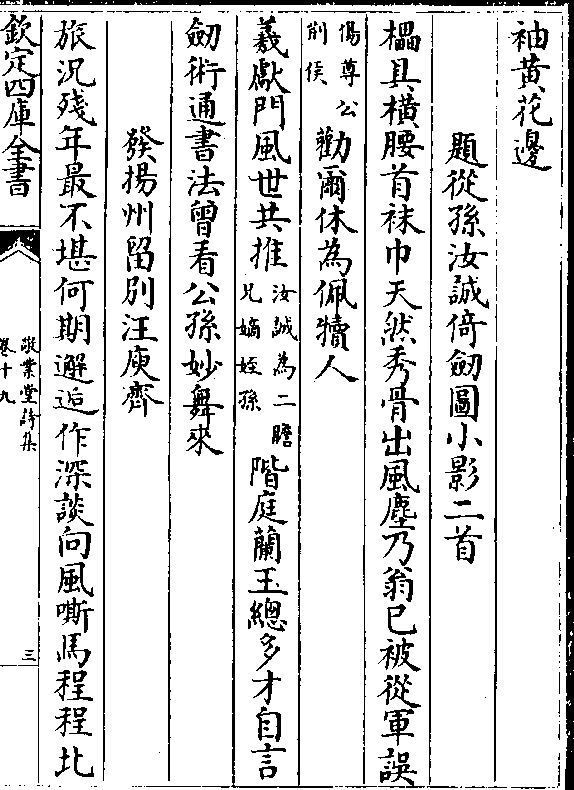 袖黄花邊
題從孫汝誠倚劒圖小影二首
櫑具横腰首袜巾天然秀骨出風塵乃翁已被從軍誤
傷尊公
削侯
勸爾休為佩犢人
羲獻門風世共推
汝誠為二瞻
兄嫡姪孫
階庭蘭玉總多才自言
劒術通書法曾看公孫妙舞來
發揚州留別汪庾齋
旅况殘年最不堪何期邂逅作深談向風嘶馬程程北
欽定四庫全書
敬業堂詩集
卷十九
三